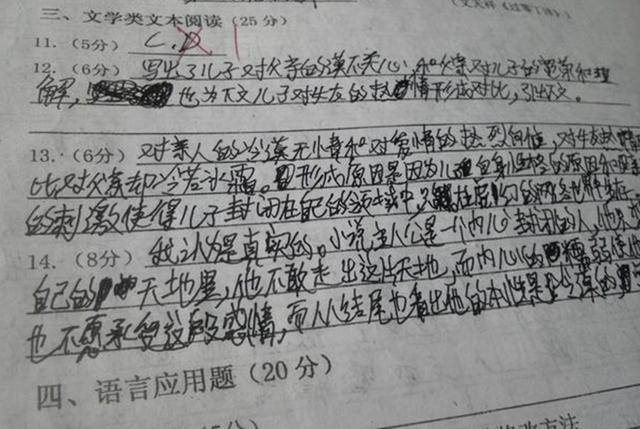 三、文学类文本阅读(25分)
11. (5分) C.D
12. (6分) 写出了儿子对父亲的漠不关心,和父亲对儿子的宽容和理
解, 也为下文儿子对女友的热情形成对比,引出下文。
13. (6分) 对亲人的冷漠无情和对爱情的热烈向往,对女友热情
比对父亲却冷若冰霜。形成原因是因为儿子自身性格的原因和
的刺激使得儿子封闭在自己的领域中,只
14. (8分) 我认为是真实的。小说主人公是一个内心封闭的人,他
自己的天地里,他不敢走出这片天地,而内心的懦弱使
也不愿承受这段感情,而从结尾也看出他的本性是冷漠的
四、语言应用题(20分)